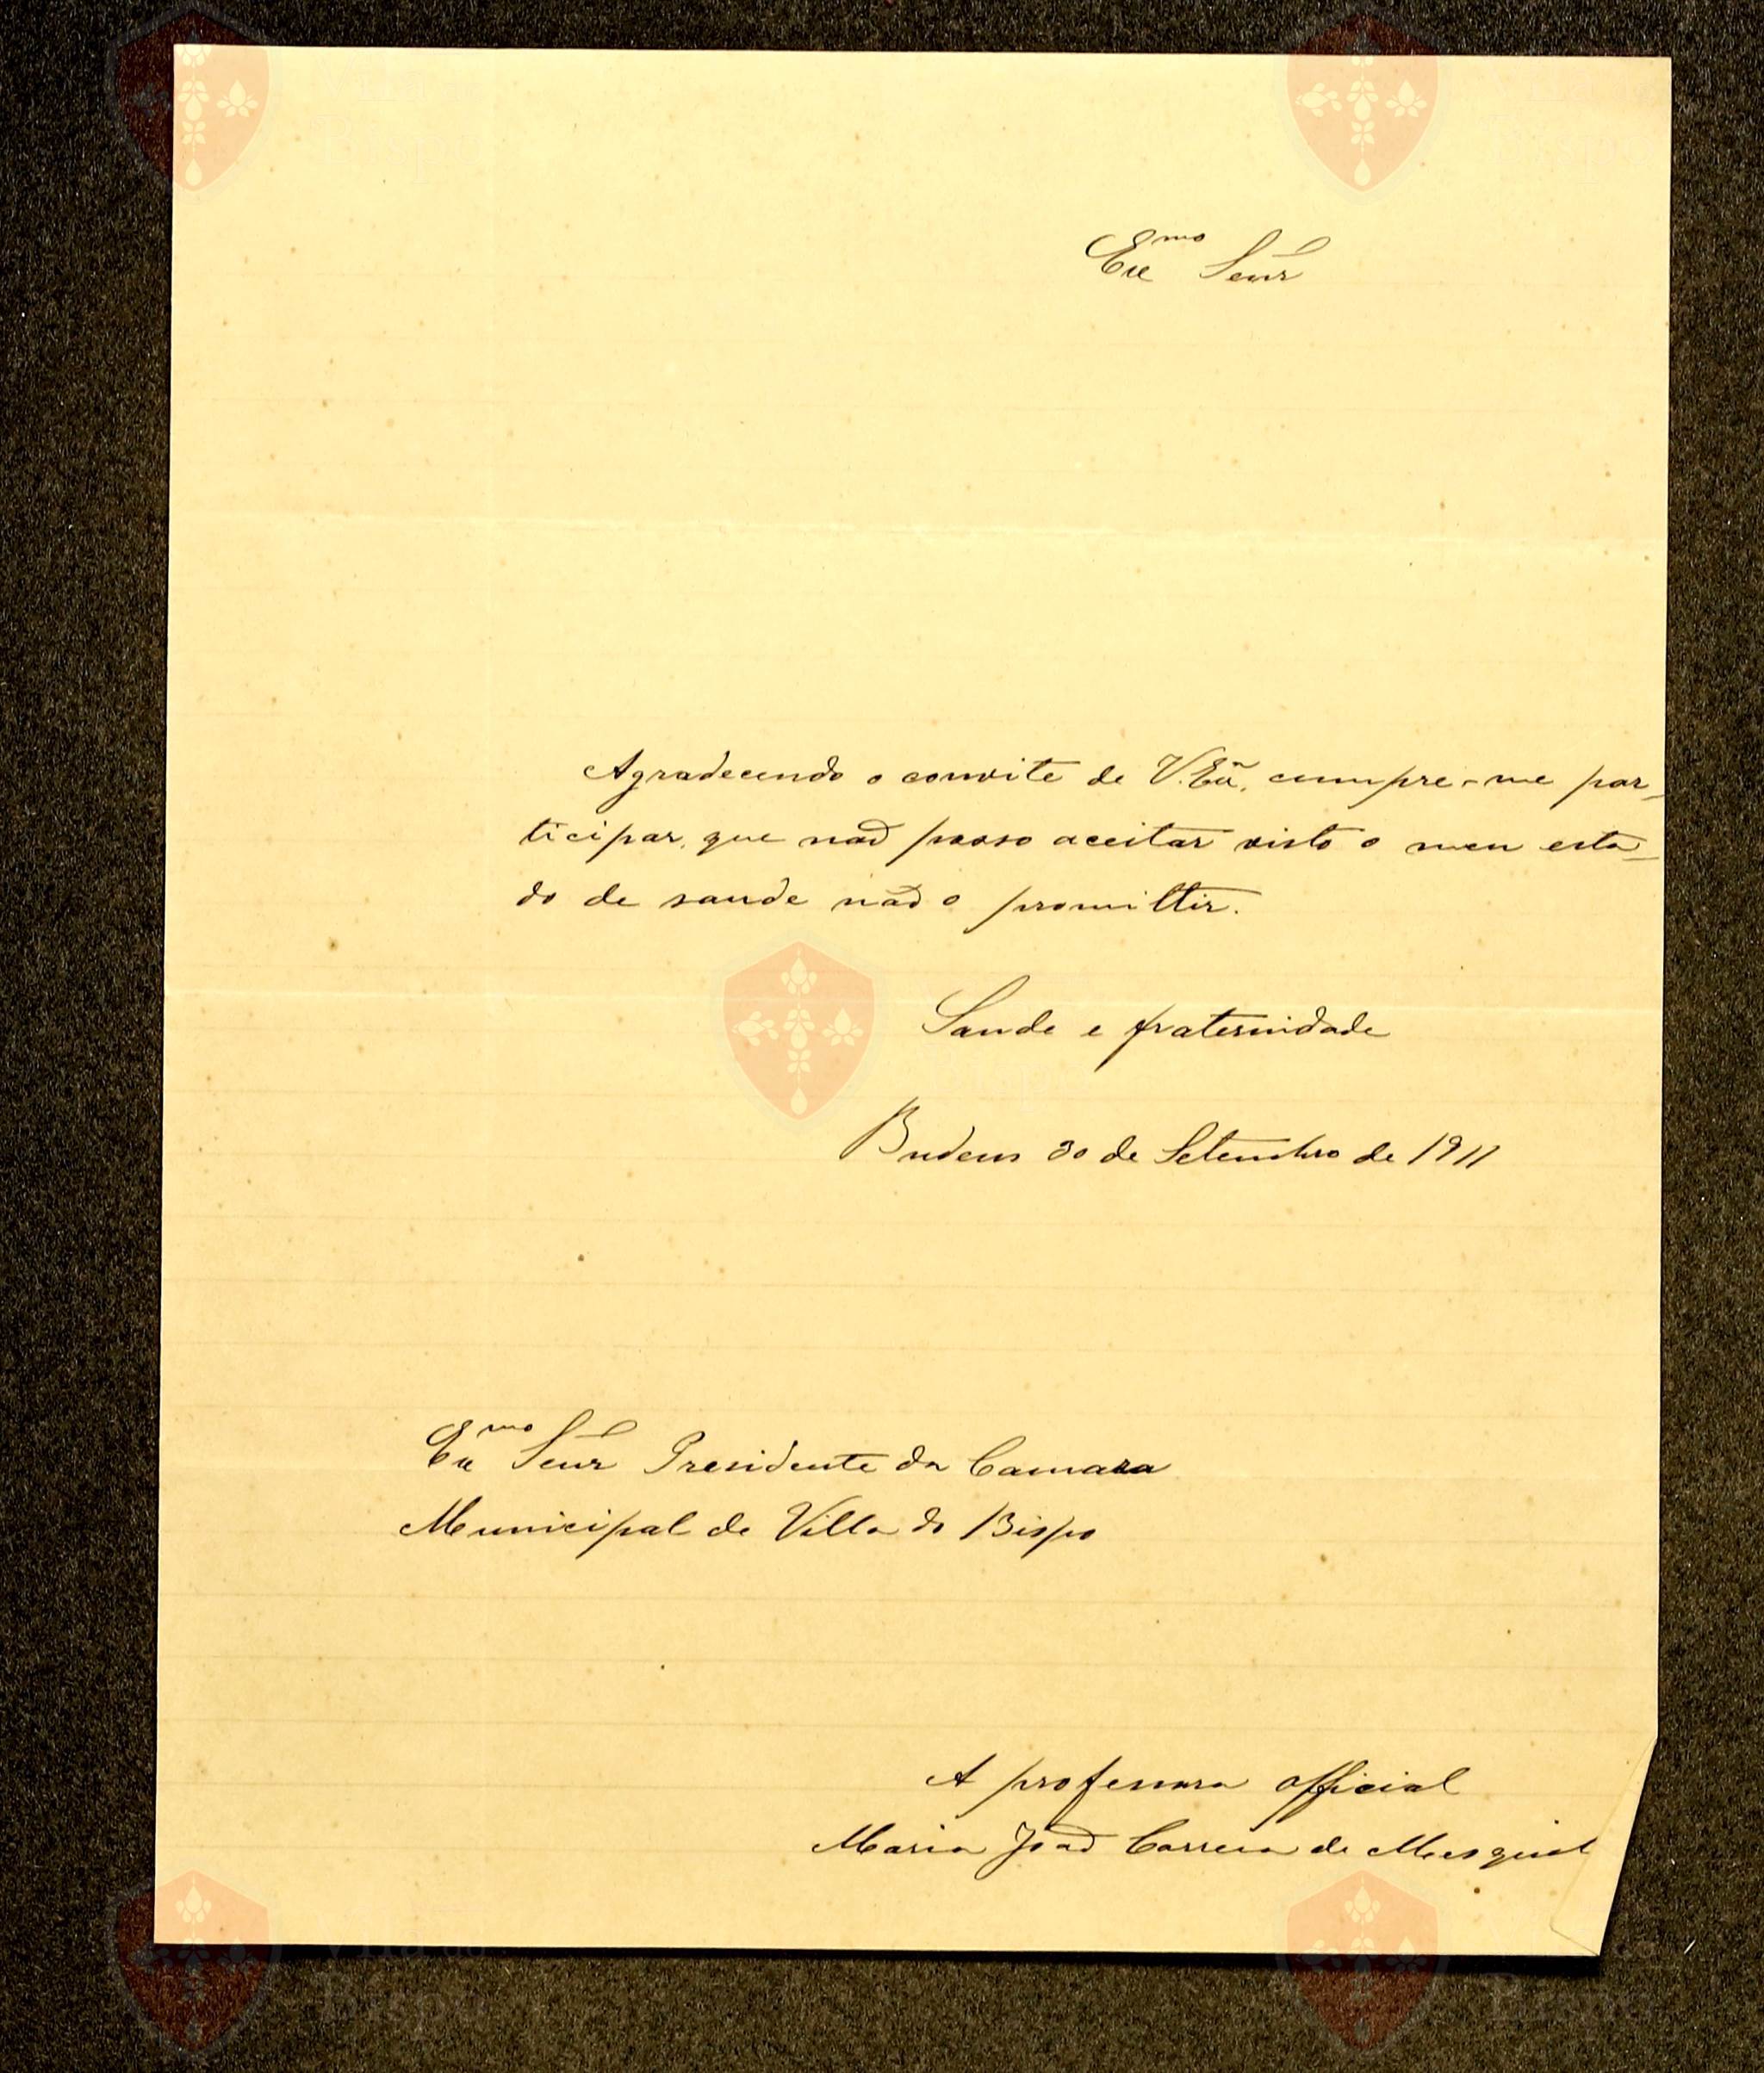 Exmo Senr
Agradecendo o convite de V. Exã, cumpre-me par-
ticipar, que não posso aceitar visto o meu esta-
do de saude não o promittir.
Saude e fraternidade
Budens 30 de Setembro de 1911
Exmo Senr Presidente da Camara
Municipal de Villa do Bispo
A professora official
Maria João Correia de Mesquit